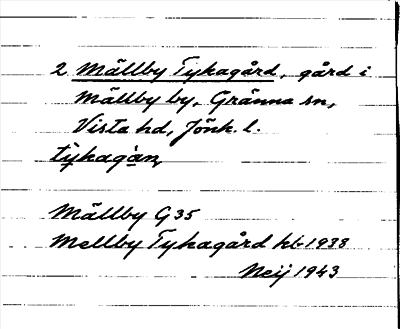 2 Mällby Tykagård, gård i
Mällby by, Gränna sn,
Vista hd, Jönk. l.
tỳkagàṇ
Mällby G35
Mellby Tykagård hb 1938
Neij 1943